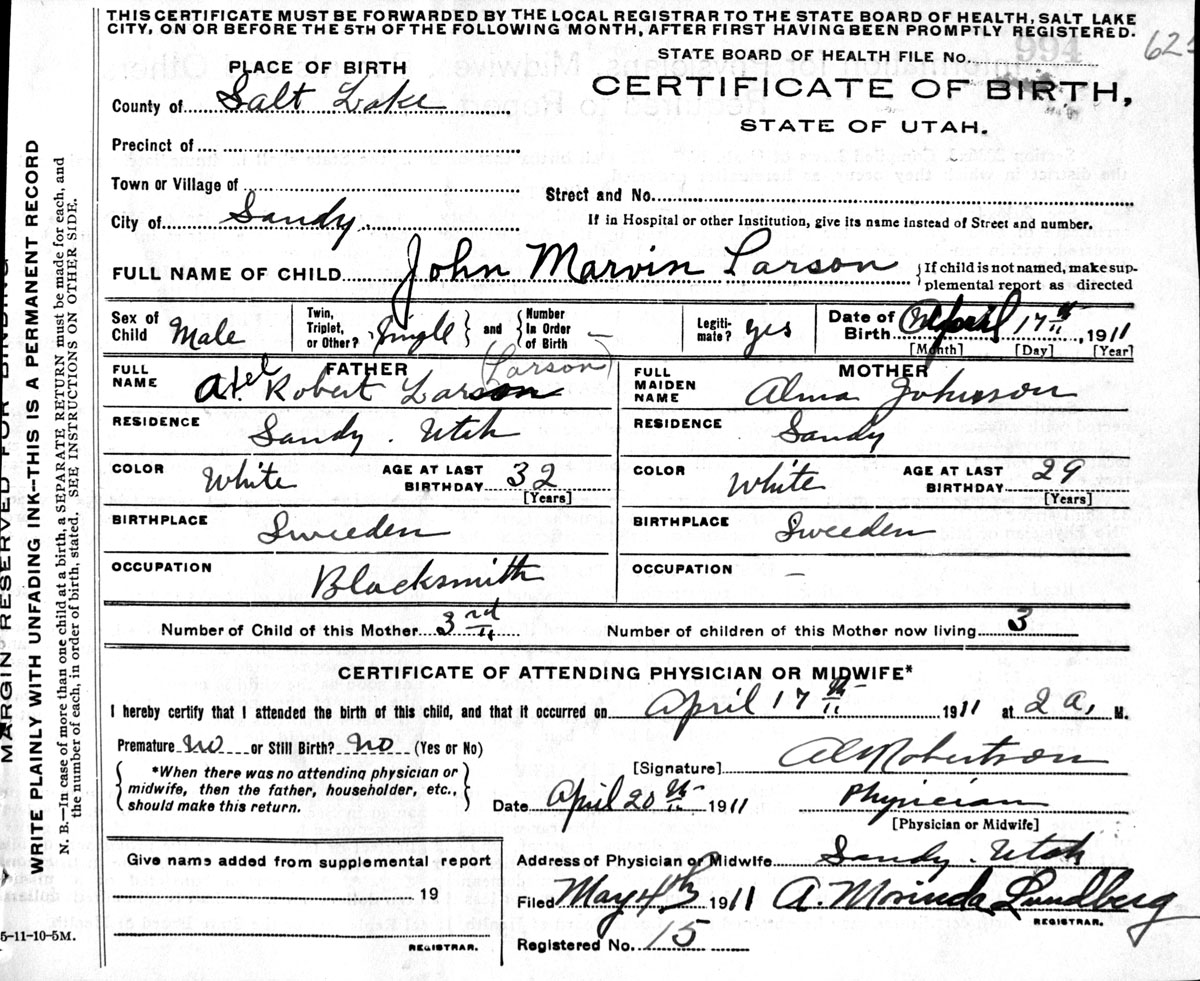 THIS CERTIFICATE MUST BE FORWARDED BY THE LOCAL REGISTRAR TO THE STATE BOARD OF HEALTH, SALT LAKE
CITY, ON OR BEFORE THE 5TH OF THE FOLLOWING MONTH, AFTER FIRST HAVING BEEN PROMPTLY REGISTERED.
STATE BOARD OF HEALTH FILE No. 994
PLACE OF BIRTH
CERTIFICATE OF BIRTH,
STATE OF UTAH.
County of Salt Lake
Precinct of
Town or Village of
Street and No.
City of Sandy
If in Hospital or other Institution, give its name instead of Street and number.
FULL NAME OF CHILD John Marvin Larson {If child is not named, make sup-
plemental report as directed
Sex of Child Male
Twin, Triplet, or Other? Single } and { Number In Order of Birth —
Legiti-mate? yes
Date of Birth April 17th, 1911
[Month] [Day] [Year]
FATHER
FULL NAME Axel Robert Larson (Larson)
RESIDENCE Sandy. Utah
COLOR White AGE AT LAST BIRTHDAY 32 [Years]
BIRTHPLACE Sweeden
OCCUPATION Blacksmith
MOTHER
FULL MAIDEN NAME Alma Johnson
RESIDENCE Sandy
COLOR White AGE AT LAST BIRTHDAY 29 [Years]
BIRTHPLACE Sweeden
OCCUPATION —
Number of Child of this Mother 3rd Number of children of this Mother now living 3
CERTIFICATE OF ATTENDING PHYSICIAN OR MIDWIFE*
I hereby certify that I attended the birth of this child, and that it occurred on April 17th 1911 at 2 a, M.
Premature No or Still Birth? No (Yes or No)
{ *When there was no attending physician or
midwife, then the father, householder, etc.,
should make this return. }
[Signature] Robertson
Date April 20th 1911 Physician
[Physician or Midwife]
Give name added from supplemental report
19
REGISTRAR.
Address of Physician or Midwife Sandy. Utah
Filed May 4th 1911 A. Morinda Lundberg
REGISTRAR.
Registered No. 15
MARGIN RESERVED FOR BINDING
WRITE PLAINLY WITH UNFADING INK--THIS IS A PERMANENT RECORD
N. B.—In case of more than one child at a birth, a SEPARATE RETURN must be made for each, and
the number of each, in order of birth, stated. SEE INSTRUCTIONS ON OTHER SIDE.
5-11-10-5M.